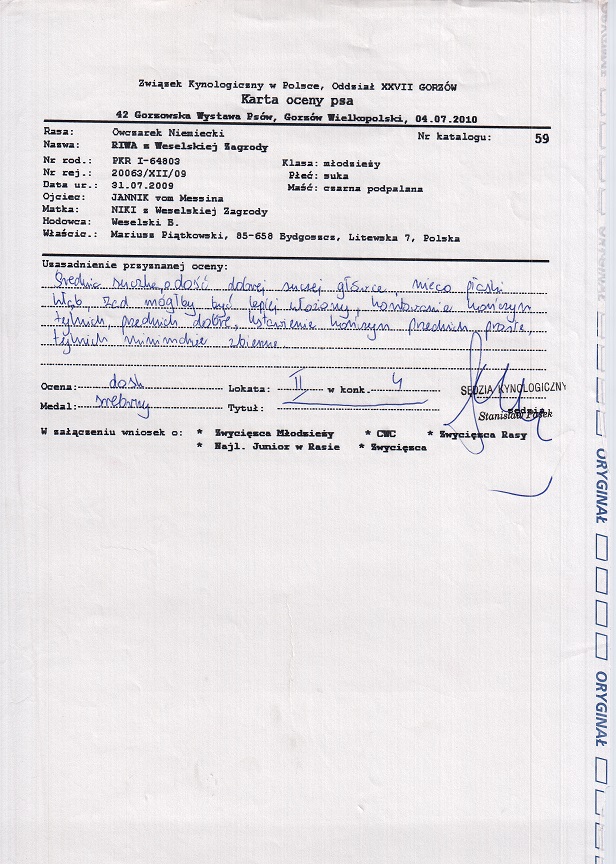 Związek Kynologiczny w Polsce, Oddział XXVII GORZÓW
Karta oceny psa
42 Gorzowska Wystawa Psów, Gorzów Wielkopolski, 04.07.2010
Rasa: Owczarek Niemiecki Nr katalogu: 59
Nazwa: RIWA z Weselskiej Zagrody
Nr rod.: PKR I-64803 Klasa: młodzieży
Nr rej.: 20063/XII/09 Płeć: suka
Data ur.: 31.07.2009 Maść: czarna podpalana
Ojciec: JANNIK vom Messina
Matka: NIKI z Weselskiej Zagrody
Hodowca: Weselski B.
Właścic.: Mariusz Piątkowski, 85-658 Bydgoszcz, Litewska 7, Polska
Uzasadnienie przyznanej oceny:
Średnia suczka, o dość dobrej suczej główce, nieco płaski
kłąb, zad mógłby być lepiej ułożony, kątowanie kończyn
tylnich, przednich dobre, ustawienie kończyn przednich proste,
tylnich minimalnie zbieżne.
Ocena: dosk Lokata: II w konk. 4
Medal: srebrny Tytuł:
SĘDZIA KYNOLOGICZNY
sędzia
Stanisław
W załączeniu wniosek o: * Zwycięzca Młodzieży * CWC * Zwycięzca Rasy
* Najl. Junior w Rasie * Zwycięzca
ORYGINAŁ
ORYGINAŁ